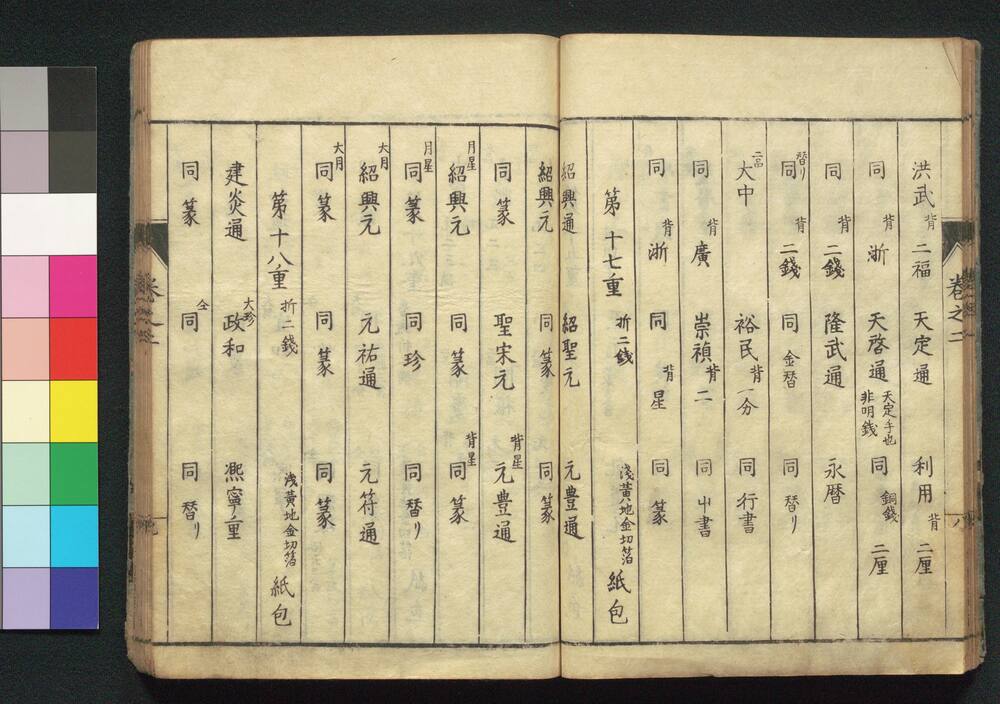 洪武 背 二福 天定通 利用 背 二厘
同 背 浙 天啓通 天定手也 非明錢 同 銅錢 二厘
同 背 二錢 隆武通 永暦
替リ 同 背 二錢 同 金替 同 替リ
二當 大中 裕民 背 一分 同 行書
同 背 廣 崇禎 背 二 同 山書
同 背 浙 同 背 星 同 篆
第十七重 折二錢 淺黄地金切箔 紙包
紹興通 紹聖元 元豊通
紹興元 同 篆 同 篆
同 篆 聖宋元 背星 元豊通
月星 紹興元 同 篆 背星 同 篆
月星 同 篆 同 珍 同 替リ
大月 紹興元 元祐通 元符通
大月 同 篆 同 篆 同 篆
第十八重 折二錢 淺黄地金切箔 紙包
建炎通 大珍 政和 熈寧重
同 篆 仝 同 同 替リ
卷之二
八